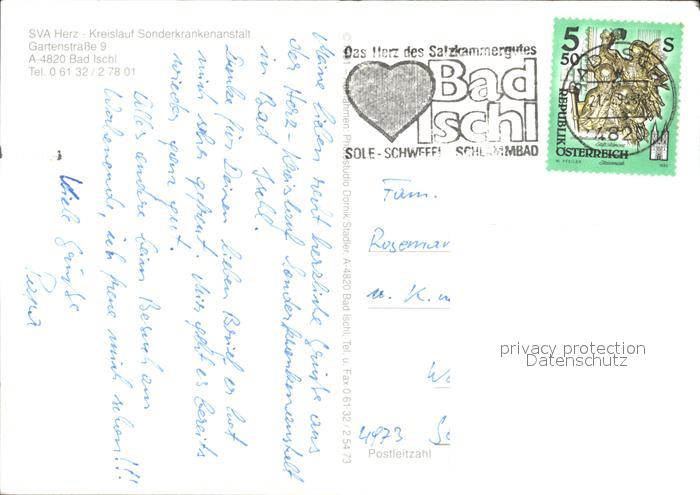 SVA Herz - Kreislauf Sonderkrankenanstalt
Gartenstraße 9
A-4820 Bad Ischl
Tel. 0 61 32 / 2 78 01
Meine lieben recht herzliche Grüße aus
der Herz-Kreislauf Sonderkrankenanstalt
in Bad Ischl.
Danke für Deinen lieben Brief er hat
mich sehr gefreut. Mir geht es bereits
wieder ganz gut.
Alles andre beim Besuch am
Wochenende, ich freue mich schon!!!
Viele Grüße
Papa
Photostudio Dornik Stadler, A-4820 Bad Ischl, Tel. u. Fax 0 61 32 / 2 54 73
Das Herz des Salzkammergutes
Bad
Ischl
SOLE-SCHWEFEL SCHLAMMBAD
5 50 S
REPUBLIK
ÖSTERREICH
Fam.
Rosemar
u. K.
4973
Postleitzahl
privacy protection
Datenschutz